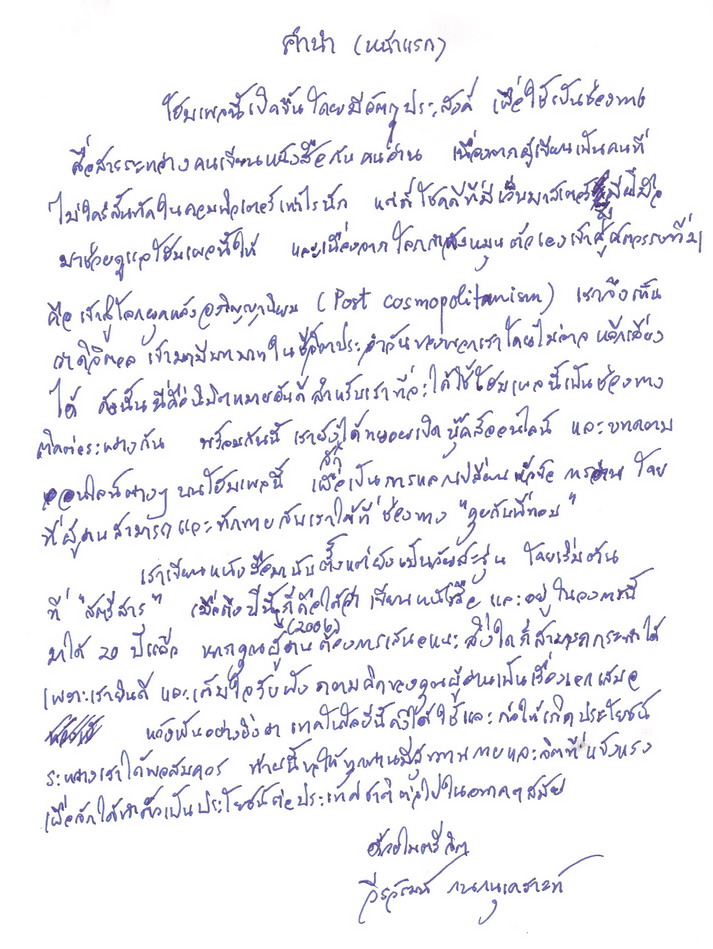 คำนำ (หน้าแรก)
โฮมเพจนี้เปิดขึ้นโดยมีวัตถุประสงค์ เพื่อใช้เป็นช่องทาง
สื่อสารระหว่างคนเขียนหนังสือกับคนอ่าน เนื่องจากผู้เขียนเป็นคนที่
ไม่ใคร่สันทัดในคอมพิวเตอร์เท่าไรนัก แต่ก็โชคดีที่มีเว็บมาสเตอร์ฝีมือ
มาช่วยดูแลโฮมเพจนี้ให้ และเนื่องจากโลกกำลังหมุนตัวเองเข้าสู่ศตวรรษที่ 21
คือ เข้าสู่โลกยุคหลัง (Post cosmopolitanism) เราจึงเห็น
ว่าดิจิตอล เข้ามามีบทบาทในชีวิตประจำวันของพวกเราโดยไม่อาจหลีกเลี่ยง
ได้ ดังนั้นนี่คือนิมิตหมายอันดีสำหรับเราที่จะได้ใช้โฮมเพจนี้เป็นช่องทาง
ติดต่อระหว่างกัน พร้อมกันนี้ เรายังได้ทยอยเปิด บุ๊คส์ออนไลน์ และบทความ
ออนไลน์ต่างๆ บนโฮมเพจนี้ เพื่อเป็นการแลกเปลี่ยน การอ่าน โดย
ที่ผู้อ่านสามารถแวะทักทายกับเราได้ที่ช่องทาง "คุยกับพี่หอม"
เราเขียนหนังสือมานับตั้งแต่ยังเป็นวัยสะรุ่น โดยเริ่มต้น
ที่ "สตรีสาร" เมื่อถึงปีนี้ (2006) ก็ถือได้ว่า เขียนหนังสือ และอยู่ในวงการนี้
มาได้ 20 ปีแล้ว หากคุณผู้อ่านต้องการเสนอแนะสิ่งใดก็สามารถกระทำได้
เพราะเรายินดี และเต็มใจรับฟังความคิดของคุณผู้อ่านเป็นเรื่องเอกเสมอ
หวังเป็นอย่างยิ่งว่า เทคโนโลยีนี้คงได้ใช้และก่อให้เกิดประโยชน์
ระหว่างเราได้พอสมควร ท้ายนี้ขอให้ทุกท่านมีสุขภาพกายและจิตที่แข็งแรง
เพื่อจักได้ทำตัวเป็นประโยชน์ต่อประเทศชาติต่อไปในอนาคตสมัย
ด้วยไมตรีจิต
วีรวัฒน์